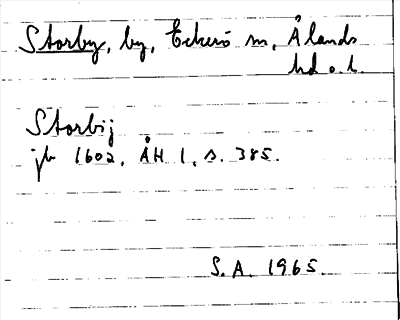 Storby, by, Eckerö sn, Ålands
hd o. l.
Storbij
jb 1602. ÅH 1, s. 385.
S.A. 1965.